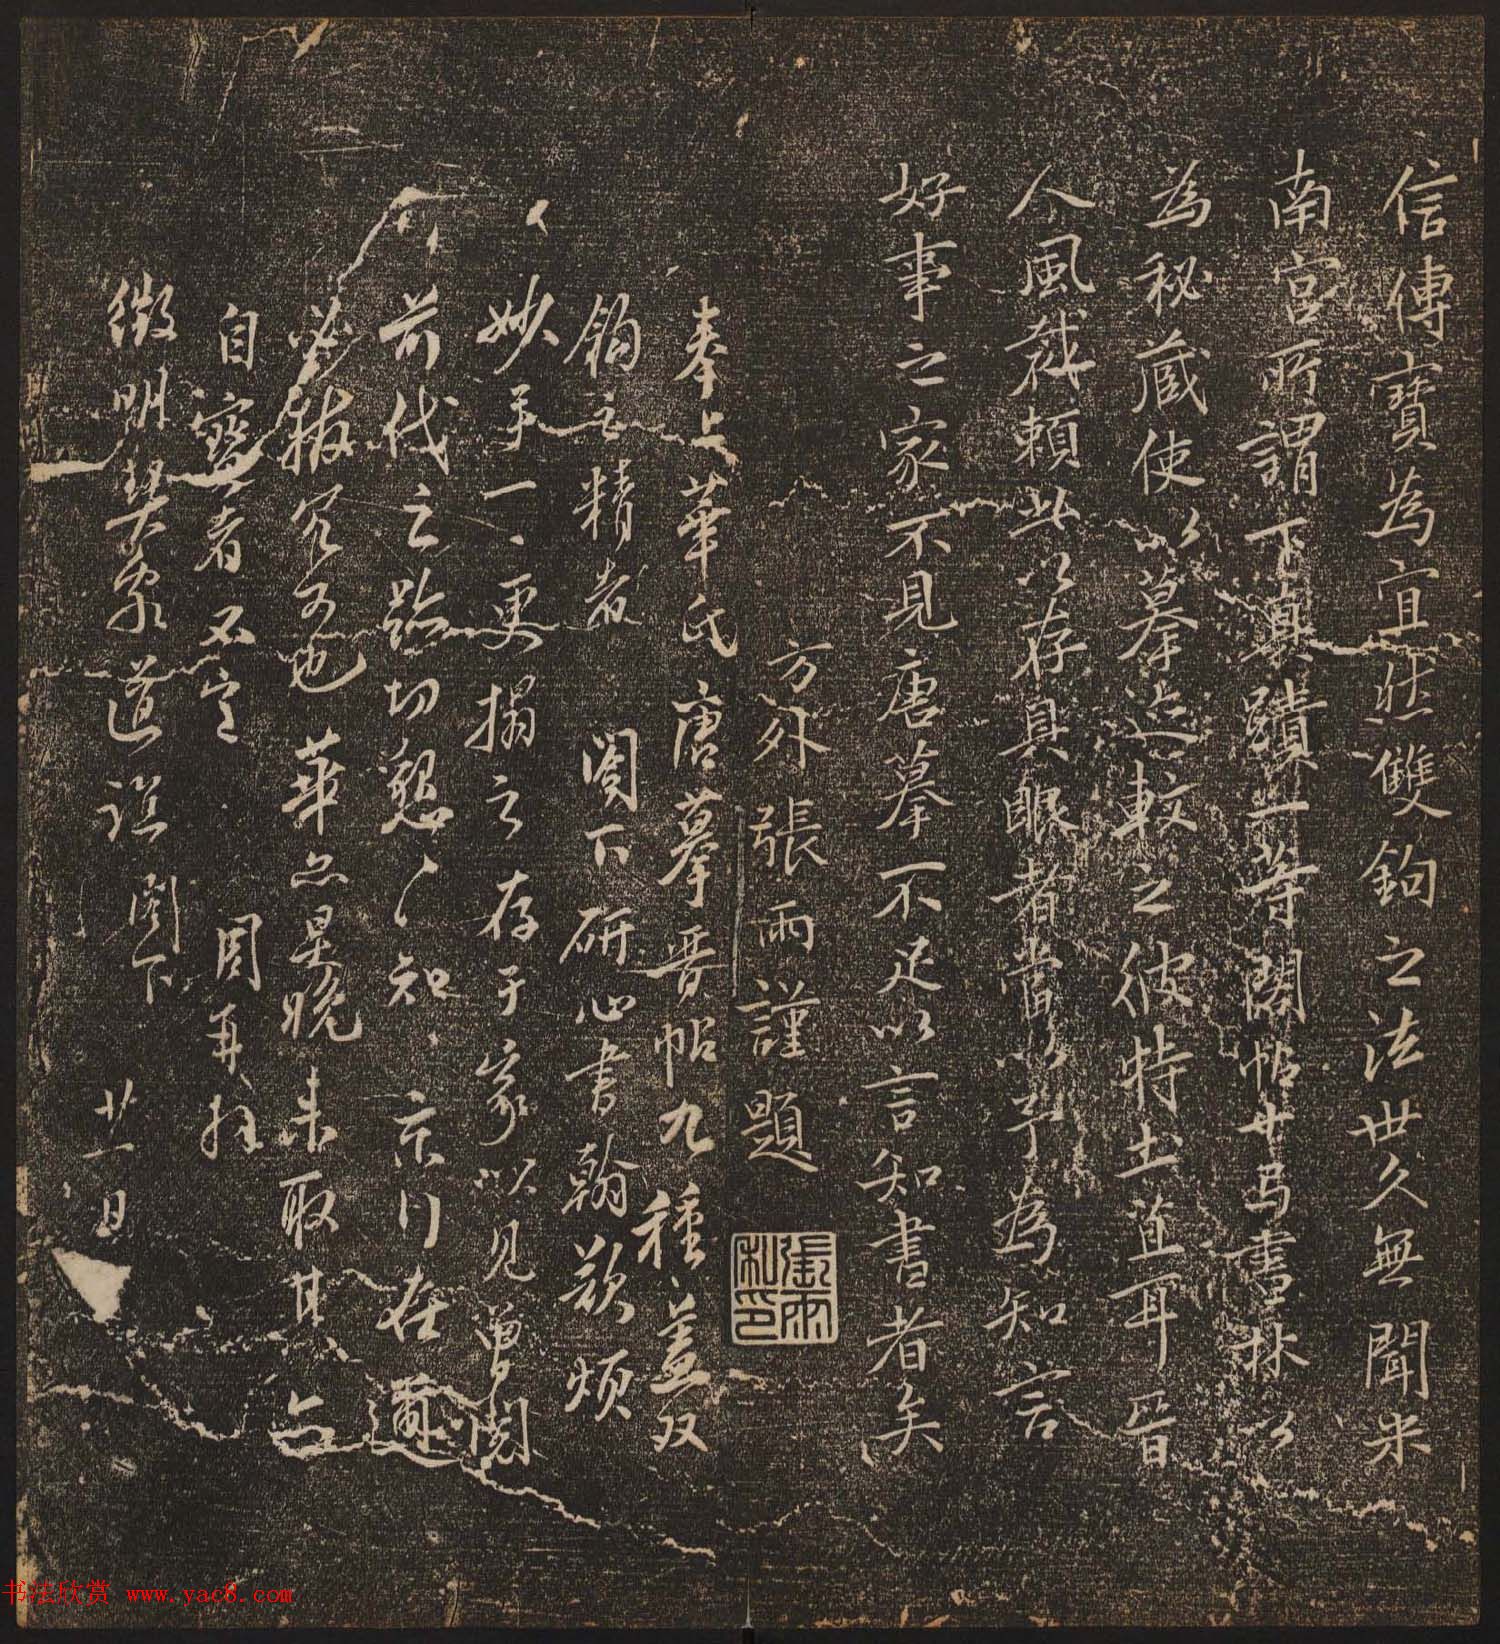 信傳寶為宜然雙鉤之法世久無聞米
南宮所謂下真蹟一等閣帖廿局書林以
為秘藏使以摹迹較之彼特土直耳晉
人風裁賴此以存具眼者當以予為知言
好事之家不見唐摹不足以言知書者矣
方外張雨謹題
張雨私印
奉上華氏唐摹晉帖九種蓋双
鈎之精者 閣下研心書翰欲煩
妙手一一更搨之存于家以見曾閱
前代之跡切懇〻知
也 華亦早晚来取其
自寶者不宣 再拜
徵明 閣下 廿一日
书法欣赏 www.yac8.com